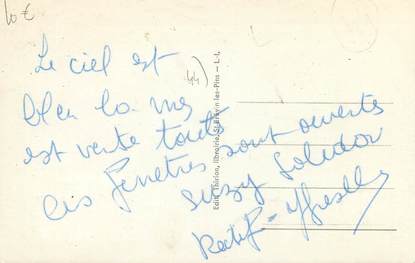 10€
Le ciel est
bleu la mer
est verte toutes
les fenêtres sont ouvertes
Suzy Solidor
44)
Edit. Thirion, librairie, St-Brévin-les-Pins — L. L.